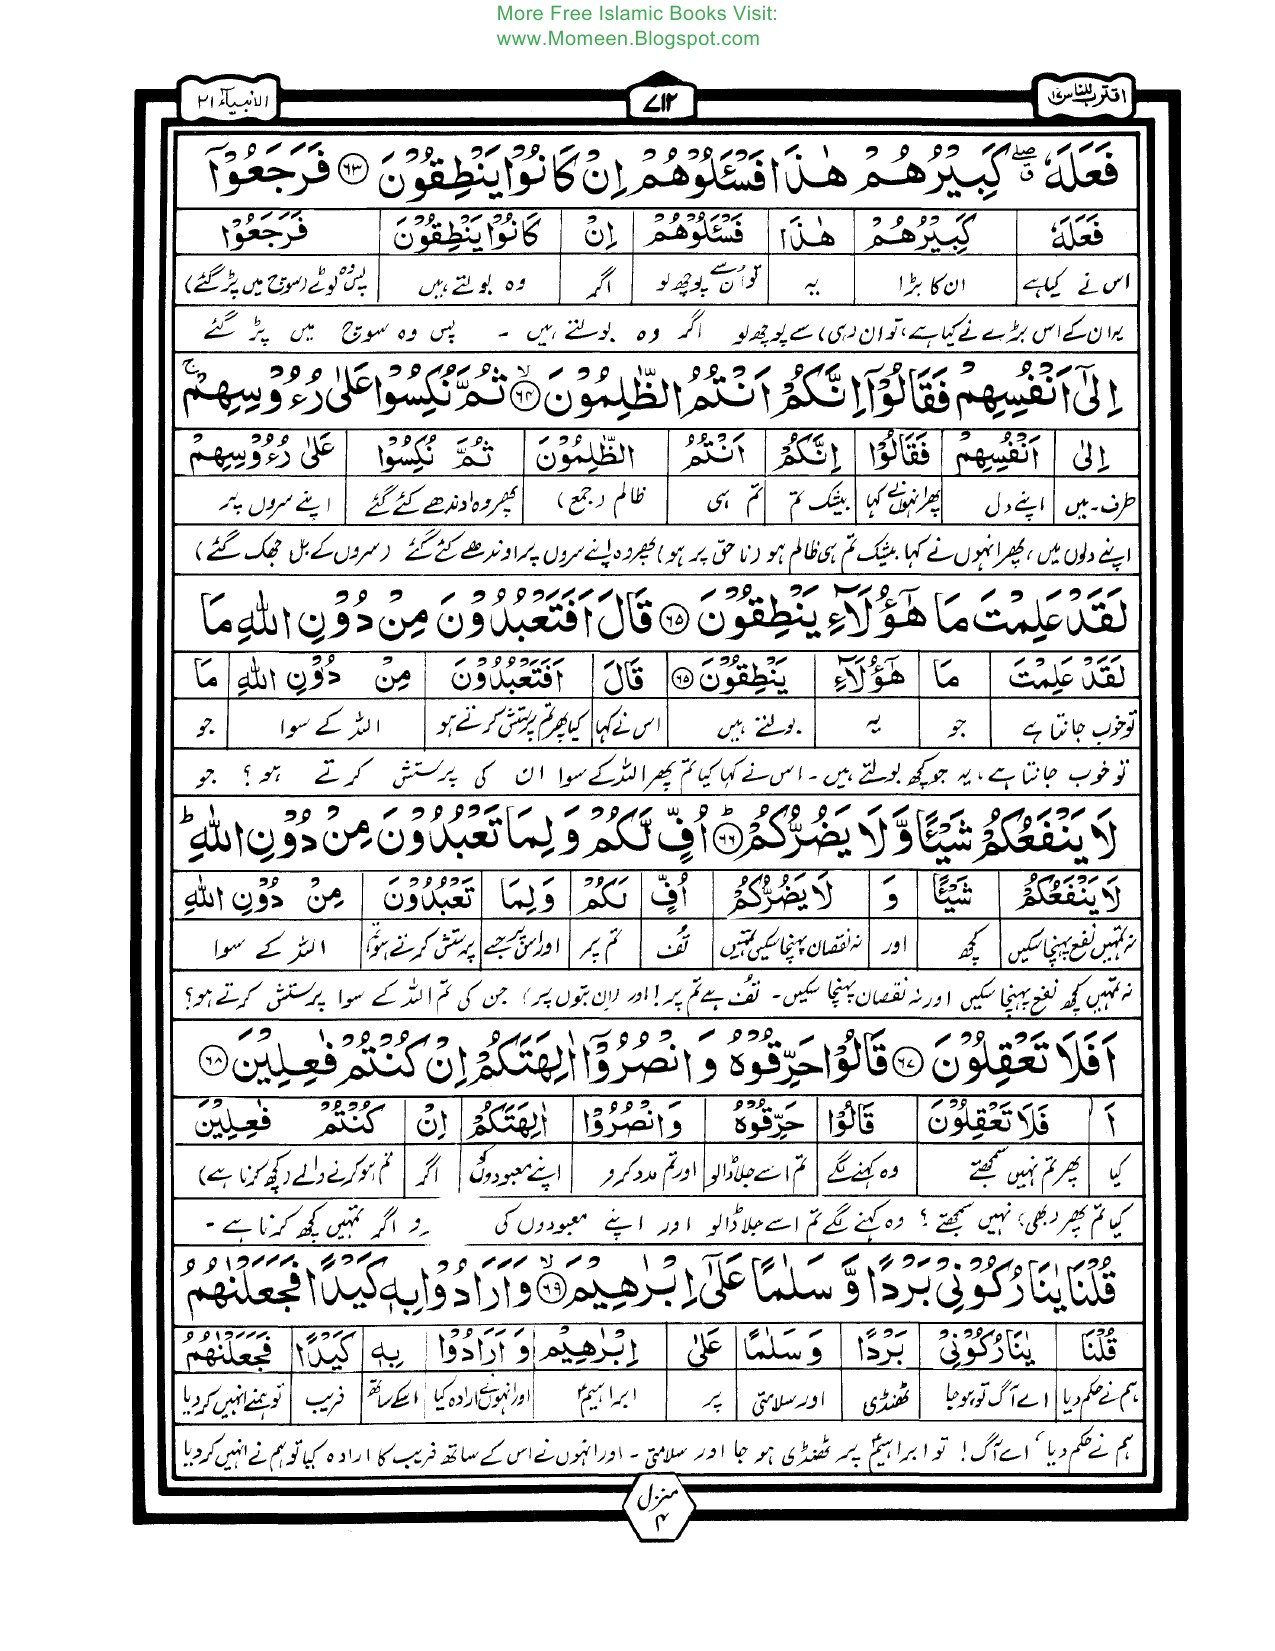 More Free Islamic Books Visit:
www.Momeen.Blogspot.com
اقترب للناس ١٧
٧١٢
الانبیآء ٢١
فَعَلَهٗ ۖۗ كَبِيْرُهُمْ هٰذَا فَسْـَٔلُوْهُمْ اِنْ كَانُوْا يَنْطِقُوْنَ ﴿٦٣﴾ فَرَجَعُوْٓا
فَعَلَهٗ كَبِيْرُهُمْ هٰذَا فَسْـَٔلُوْهُمْ اِنْ كَانُوْا يَنْطِقُوْنَ فَرَجَعُوْٓا
اس نے کیا ہے ان کا بڑا یہ تو ان سے پوچھ لو اگر وہ بولتے ہیں پس وہ لوٹے (سوچ میں پڑ گئے)
یہ ان کے اس بڑے نے کیا ہے، تو ان (ہی) سے پوچھ لو اگر وہ بولتے ہیں ۔ پس وہ سوچ میں پڑ گئے
اِلٰٓى اَنْفُسِهِمْ فَقَالُوْٓا اِنَّكُمْ اَنْتُمُ الظّٰلِمُوْنَ ﴿٦٤﴾ ثُمَّ نُكِسُوْا عَلٰى رُءُوْسِهِمْ ۚ
اِلٰى اَنْفُسِهِمْ فَقَالُوْٓا اِنَّكُمْ اَنْتُمُ الظّٰلِمُوْنَ ثُمَّ نُكِسُوْا عَلٰى رُءُوْسِهِمْ
طرف۔میں اپنے دل پھر انہوں نے کہا بیشک تم تم ہی ظالم (جمع) پھر وہ اوندھے کئے گئے اپنے سروں پر
اپنے دلوں میں، پھر انہوں نے کہا بیشک تم ہی ظالم ہو (ناحق پر ہو) پھر وہ اپنے سروں پر اوندھے کئے گئے (سروں کے بل جھک گئے)
لَقَدْ عَلِمْتَ مَا هٰٓؤُلَآءِ يَنْطِقُوْنَ ﴿٦٥﴾ قَالَ اَفَتَعْبُدُوْنَ مِنْ دُوْنِ اللّٰهِ مَا
لَقَدْ عَلِمْتَ مَا هٰٓؤُلَآءِ يَنْطِقُوْنَ ﴿٦٥﴾ قَالَ اَفَتَعْبُدُوْنَ مِنْ دُوْنِ اللّٰهِ مَا
تو خوب جانتا ہے جو یہ بولتے ہیں اس نے کہا کیا پھر تم پرستش کرتے ہو اللہ کے سوا جو
تو خوب جانتا ہے، یہ جو کچھ بولتے ہیں ۔ اس نے کہا کیا تم پھر اللہ کے سوا ان کی پرستش کرتے ہو؟ جو
لَا يَنْفَعُكُمْ شَيْـًٔا وَّلَا يَضُرُّكُمْ ﴿٦٦﴾ اُفٍّ لَّكُمْ وَلِمَا تَعْبُدُوْنَ مِنْ دُوْنِ اللّٰهِ ؕ
لَا يَنْفَعُكُمْ شَيْـًٔا وَ لَا يَضُرُّكُمْ اُفٍّ لَكُمْ وَلِمَا تَعْبُدُوْنَ مِنْ دُوْنِ اللّٰهِ
نہ تمہیں نفع پہنچا سکیں کچھ اور نہ نقصان پہنچا سکیں تمہیں تُف تم پر اور اس پر جسے پرستش کرتے ہو تم اللہ کے سوا
نہ تمہیں کچھ نفع پہنچا سکیں اور نہ نقصان پہنچا سکیں۔ تُف ہے تم پر! اور (ان بتوں پر) جن کی تم اللہ کے سوا پرستش کرتے ہو؟
اَفَلَا تَعْقِلُوْنَ ﴿٦٧﴾ قَالُوْا حَرِّقُوْهُ وَانْصُرُوْٓا اٰلِهَتَكُمْ اِنْ كُنْتُمْ فٰعِلِيْنَ ﴿٦٨﴾
اَ فَلَا تَعْقِلُوْنَ قَالُوْا حَرِّقُوْهُ وَانْصُرُوْٓا اٰلِهَتَكُمْ اِنْ كُنْتُمْ فٰعِلِيْنَ
کیا پھر تم نہیں سمجھتے وہ کہنے لگے تم اسے جلا ڈالو اور تم مدد کرو اپنے معبودوں کو اگر تم ہو کرنے والے (کچھ کرنا ہے)
کیا تم پھر (بھی) نہیں سمجھتے؟ وہ کہنے لگے تم اسے جلا ڈالو اور اپنے معبودوں کی رو اگر تمہیں کچھ کرنا ہے ۔
قُلْنَا يٰنَارُ كُوْنِيْ بَرْدًا وَّسَلٰمًا عَلٰٓى اِبْرٰهِيْمَ ﴿٦٩﴾ وَاَرَادُوْا بِهٖ كَيْدًا فَجَعَلْنٰهُمُ
قُلْنَا يٰنَارُ كُوْنِيْ بَرْدًا وَسَلٰمًا عَلٰٓى اِبْرٰهِيْمَ وَاَرَادُوْا بِهٖ كَيْدًا فَجَعَلْنٰهُمُ
ہم نے حکم دیا اے آگ تو ہو جا ٹھنڈی اور سلامتی پر ابراہیمؑ اور انہوں نے ارادہ کیا اسکے ساتھ فریب تو ہم نے انہیں کر دیا
ہم نے حکم دیا، اے آگ! تو ابراہیمؑ پر ٹھنڈی ہو جا اور سلامتی ۔ اور انہوں نے اس کے ساتھ فریب کا ارادہ کیا تو ہم نے انہیں کر دیا
منزل
٤